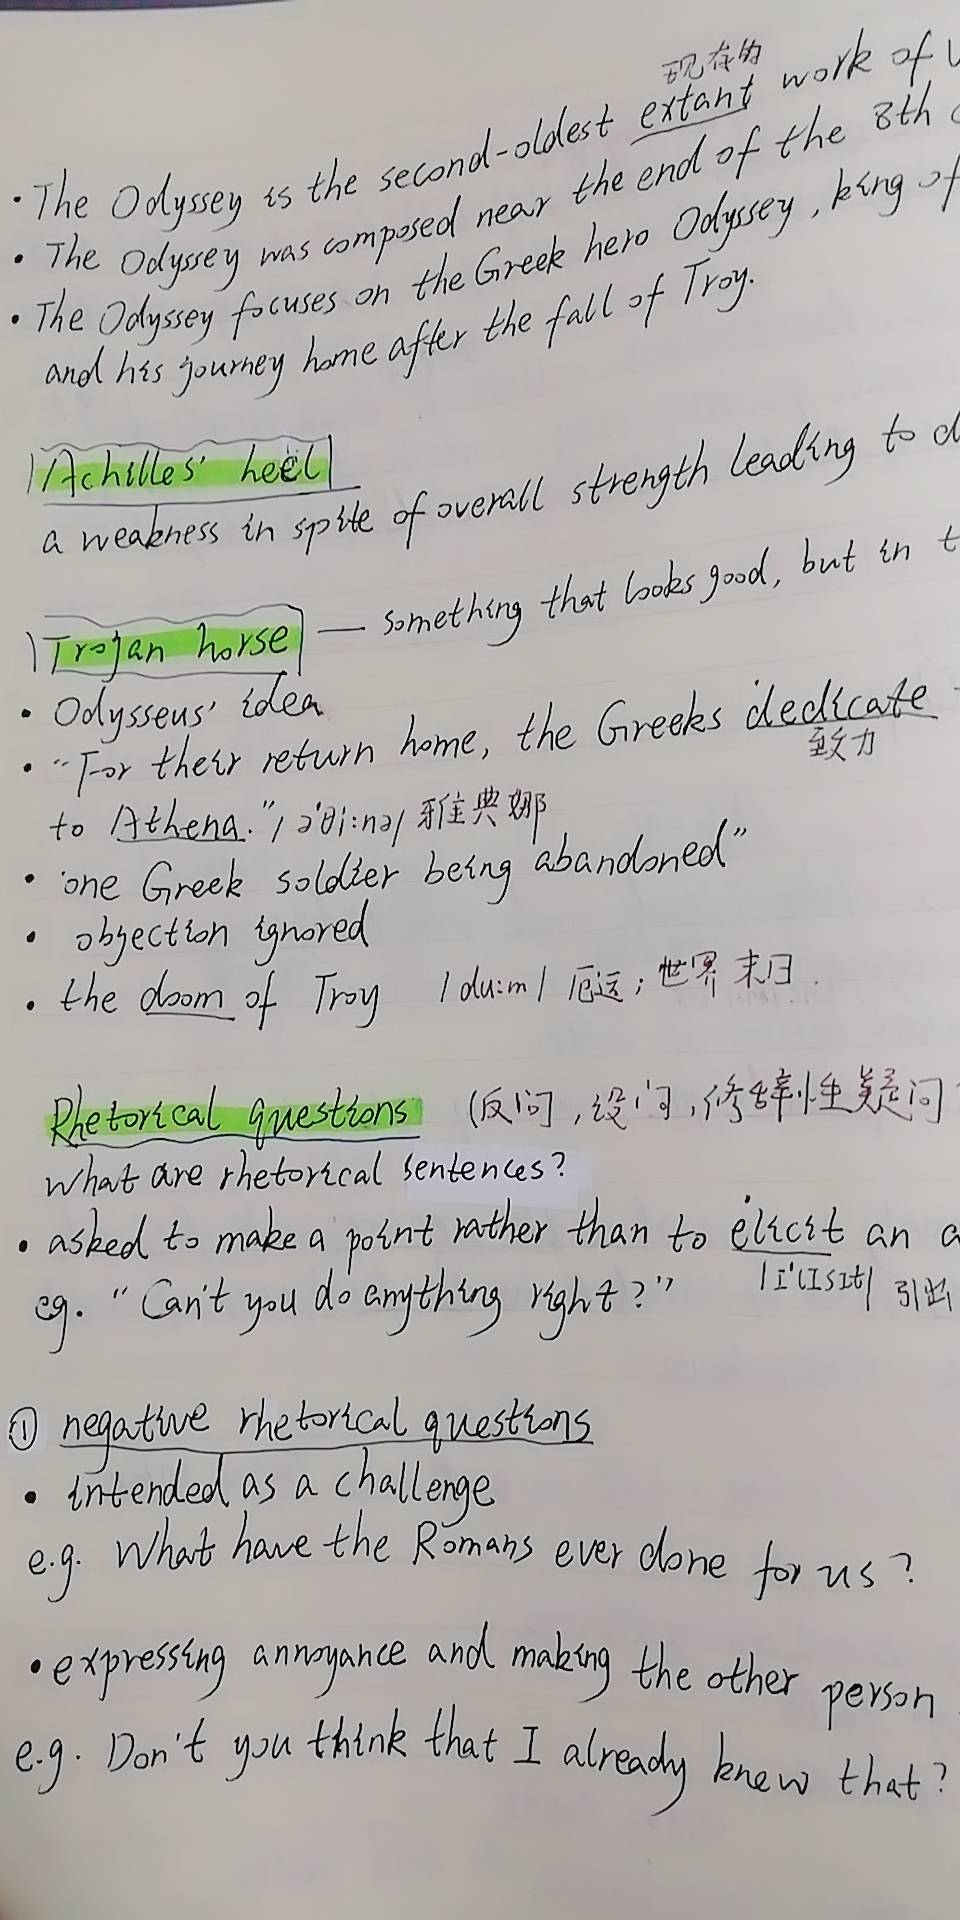 现在的
• The Odyssey is the second-oldest extant work of
• The Odyssey was composed near the end of the 8th
• The Odyssey focuses on the Greek hero Odyssey, king of
and his journey home after the fall of Troy.
Achilles' heel
a weakness in spite of overall strength leading to
Trojan horse — something that looks good, but in
• Odysseus' idea
• "For their return home, the Greeks dedicate
致力
to Athena." /ə'θi:nə/ 雅典娜
• one Greek soldier being abandoned"
• objection ignored
• the doom of Troy /du:m/ 厄运；世界末日.
Rhetorical questions (反问,设问,修辞性疑问
What are rhetorical sentences?
• asked to make a point rather than to elicit an
eg. "Can't you do anything right?" /ɪ'lɪsɪt/ 引出
① negative rhetorical questions
• intended as a challenge
e.g. What have the Romans ever done for us?
• expressing annoyance and making the other person
e.g. Don't you think that I already knew that?